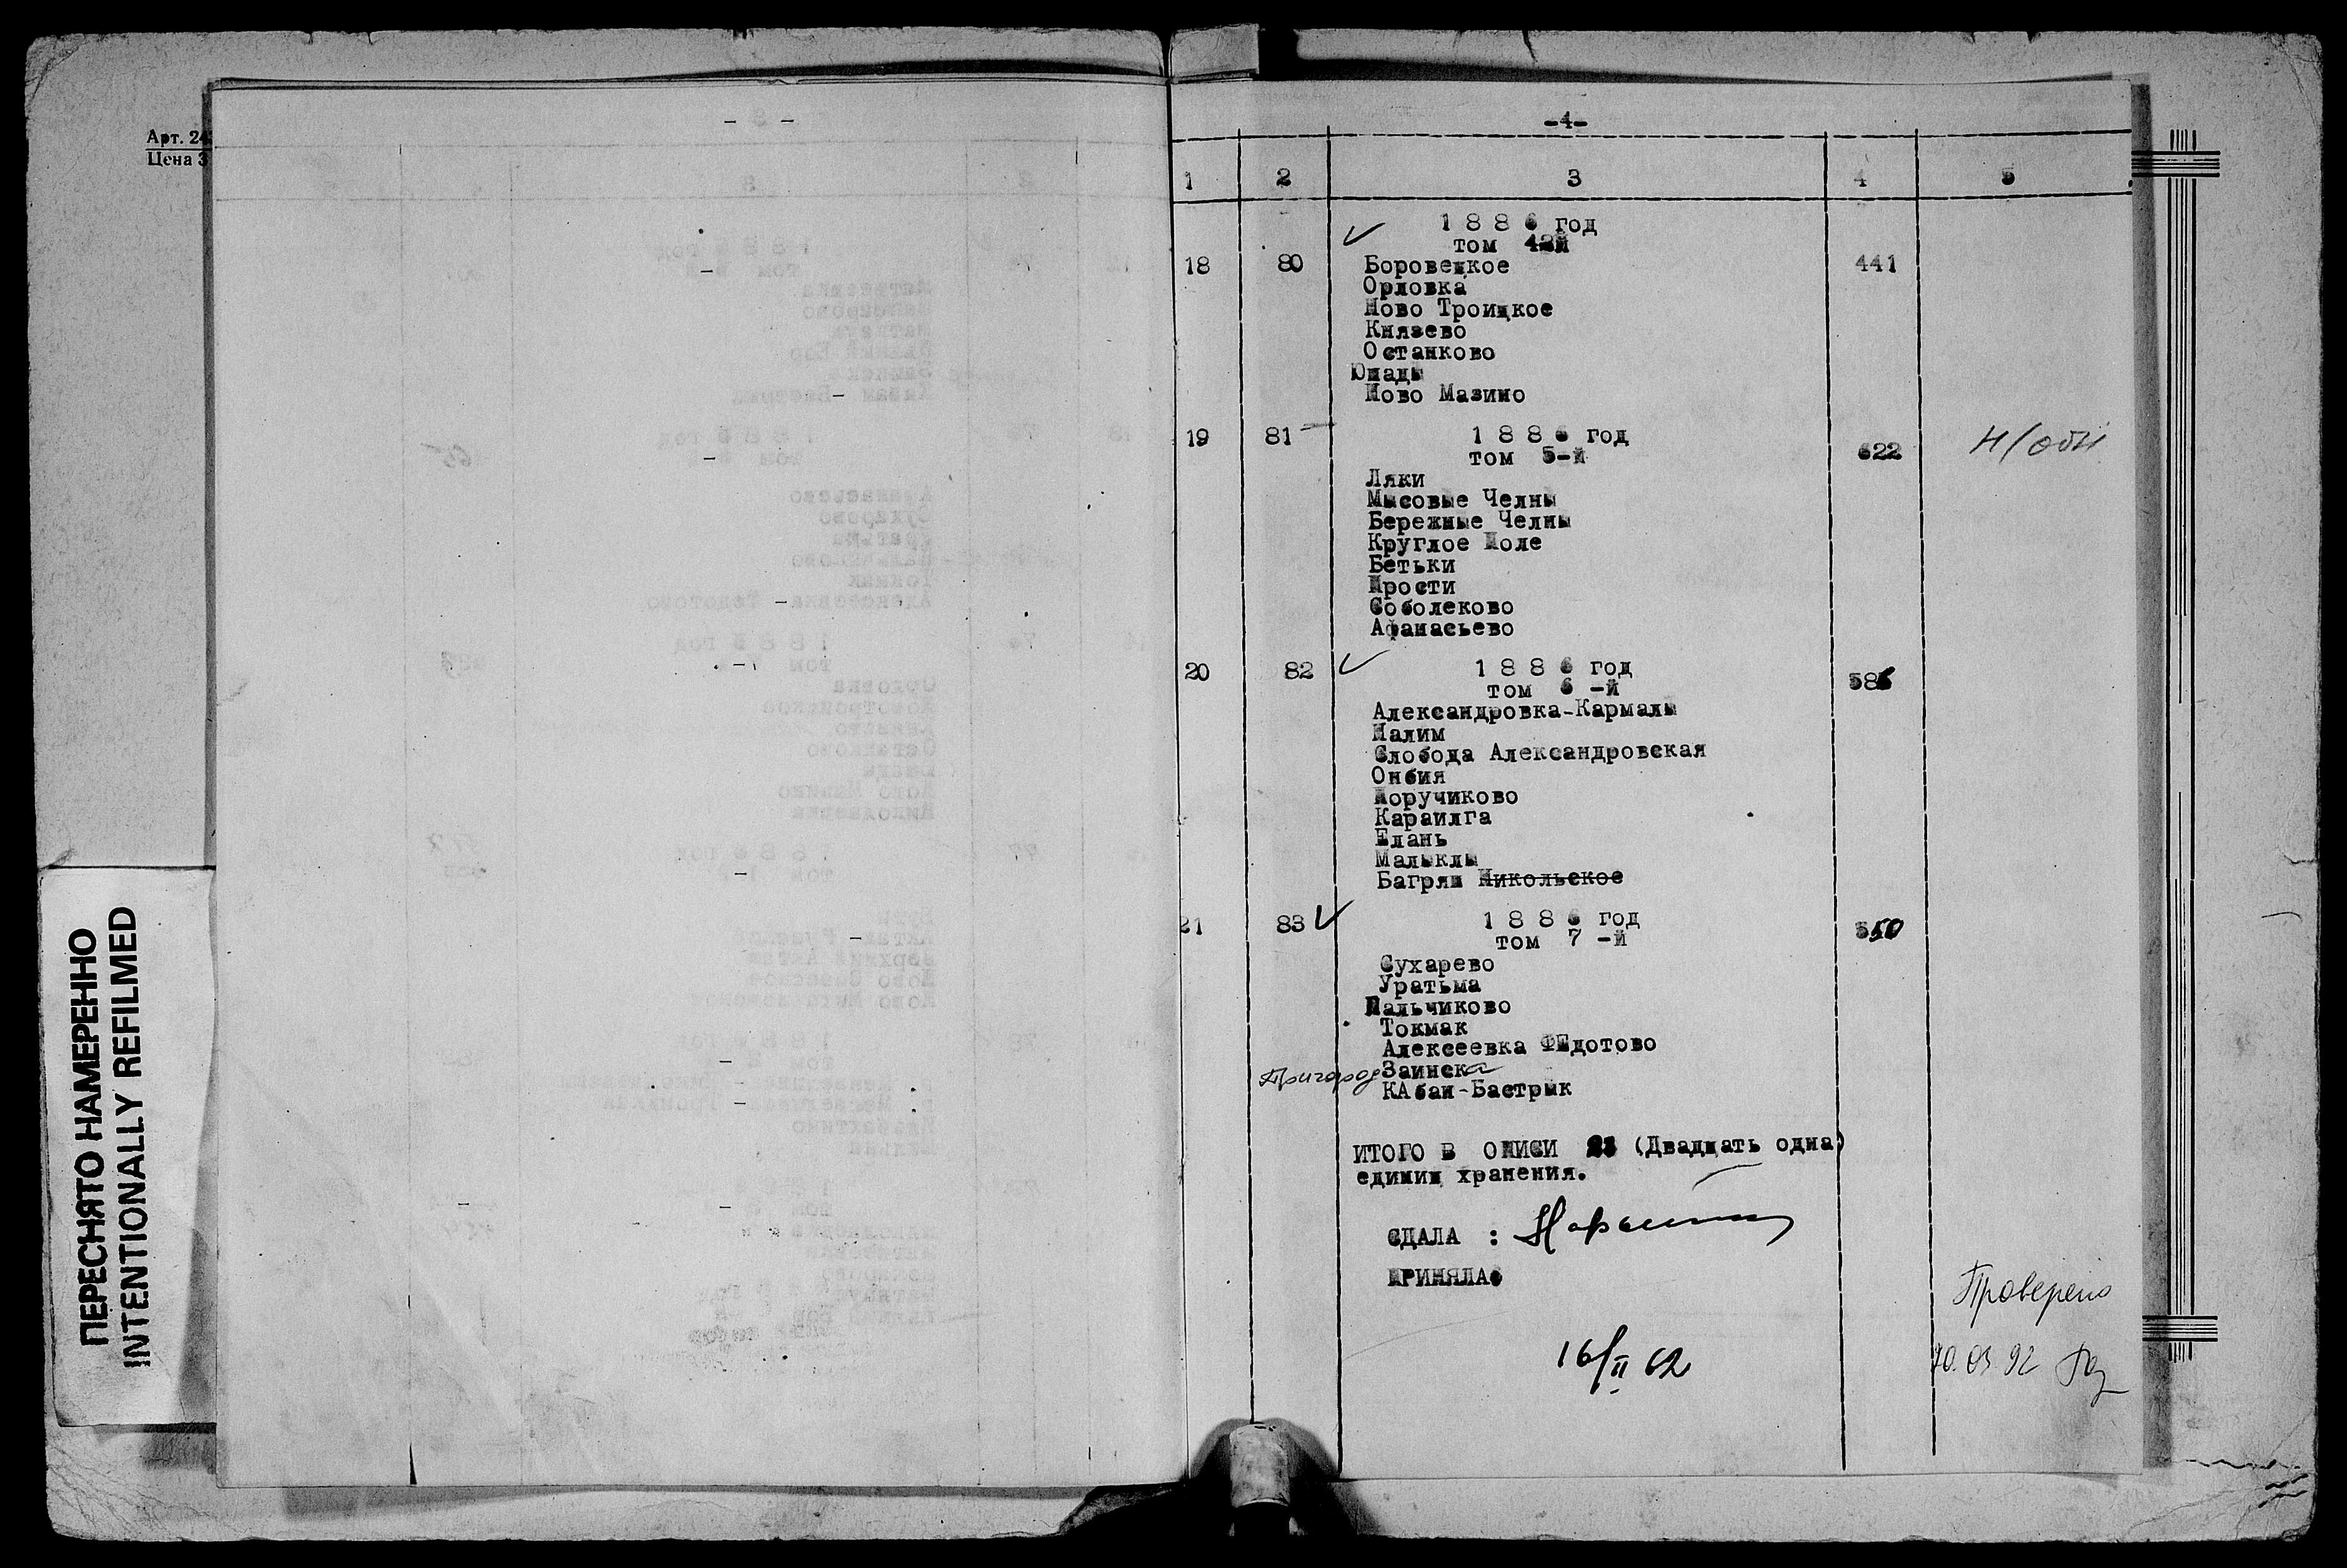 Арт. 24
Цена 3
ПЕРЕСНЯТО НАМЕРЕННО
INTENTIONALLY REFILMED
-4-
1 2 3 4 5
1 8 8 6 год
том 4й
18 80 Боровецкое 441
Орловка
Ново Троицкое
Князево
Останково
Юшады
Ново Мазино
19 81 1 8 8 6 год 622 Н/обн
том 5-й
Ляки
Мысовые Челны
Бережные Челны
Круглое Поле
Бетьки
Прости
Соболеково
Афанасьево
20 82 1 8 8 6 год 586
том 6 -й
Александровка-Кармалы
Налим
Слобода Александровская
Онбия
Поручиково
Караилга
Елань
Малыклы
Багряш Никольское
21 83 1 8 8 6 год 550
том 7 -й
Сухарево
Уратьма
Пальчиково
Токмак
Алексеевка ФЕдотово
Пригород Заинска
КАбан-Бастрык
ИТОГО В ОПИСИ 21 (Двадцать одна)
единиц хранения.
СДАЛА :
ПРИНЯЛА
16/II 62
Проверено
92